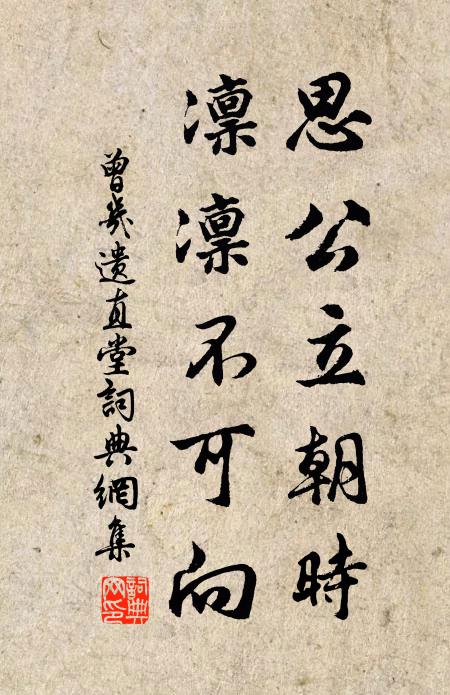 思公立朝時
凛凛不可向
曾幾遺直堂詞典網集
詞典
网印